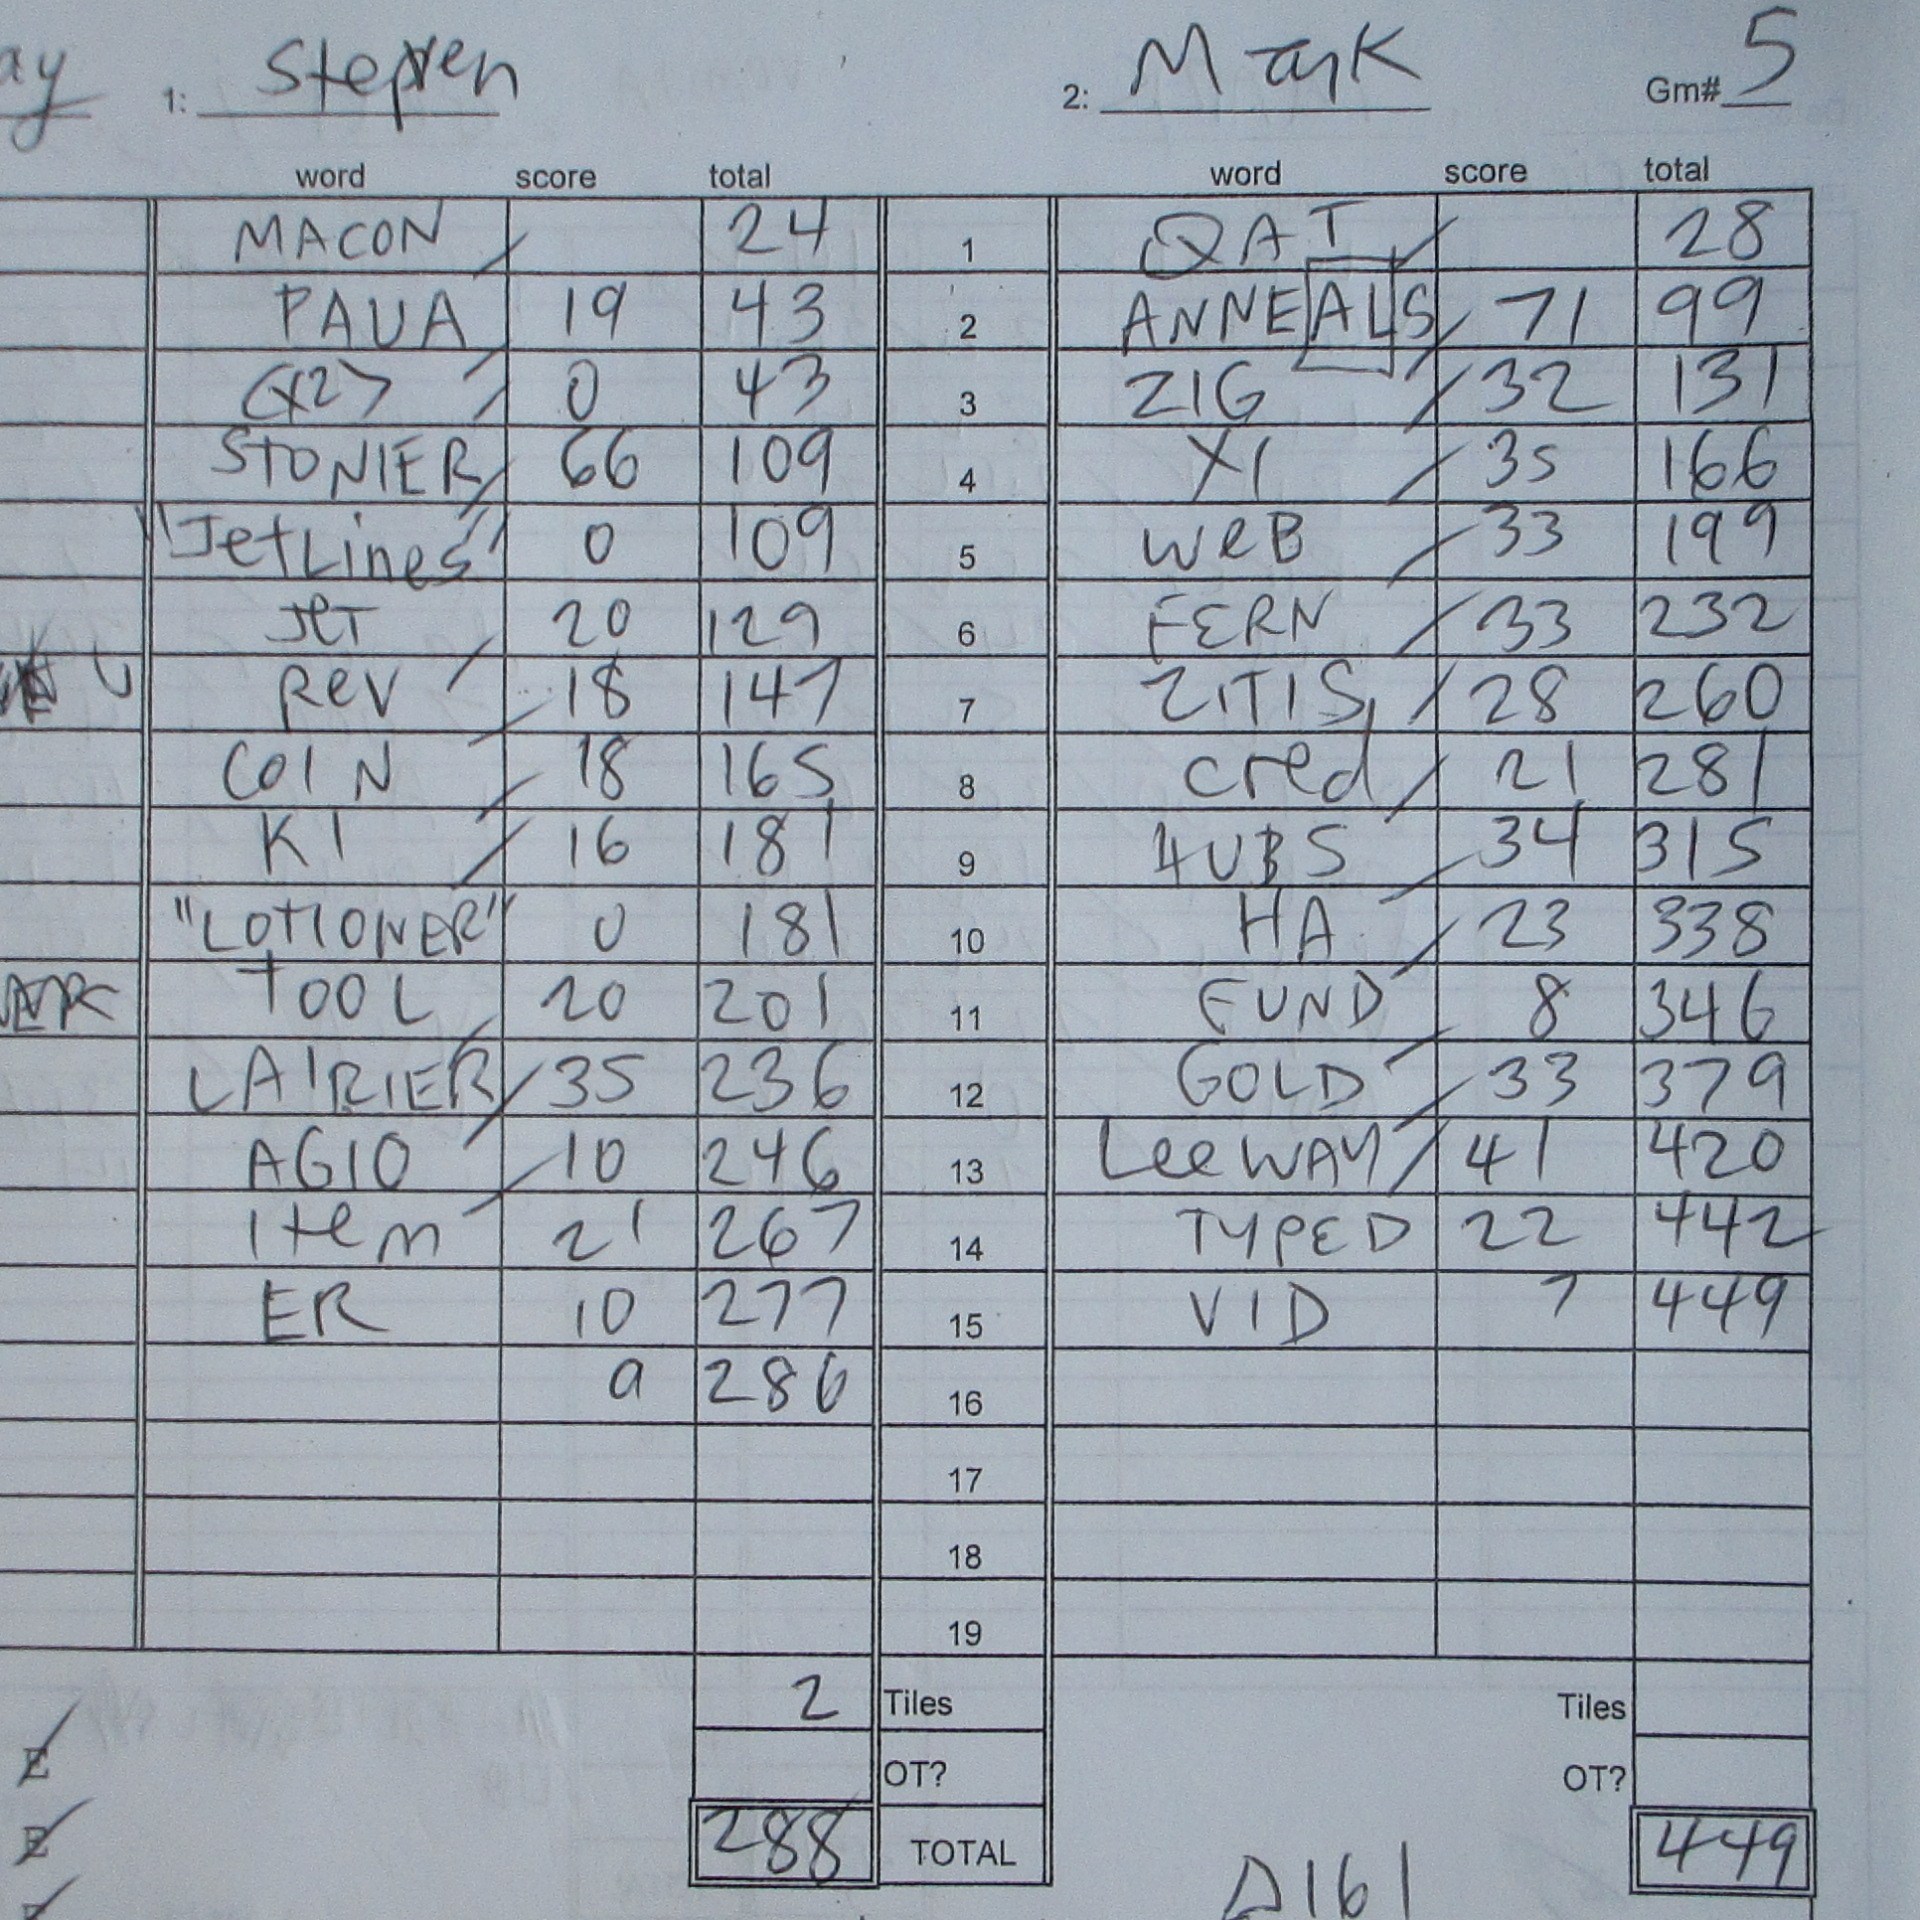 ay 1: Stephen 2: Mark Gm# 5
word score total word score total
MACON 24 1 QAT 28
PAUA 19 43 2 ANNEALS 71 99
<X2> 0 43 3 ZIG 32 131
STONIER 66 109 4 XI 35 166
"JetLines" 0 109 5 WeB 33 199
JeT 20 129 6 FERN 33 232
ReV 18 147 7 ZITIS 28 260
COIN 18 165 8 cred 21 281
KI 16 181 9 HUBS 34 315
"LOTIONER" 0 181 10 HA 23 338
TOOL 20 201 11 FUND 8 346
LAIRIER 35 236 12 GOLD 33 379
AGIO 10 246 13 LeeWAY 41 420
Item 21 267 14 TYPED 22 442
ER 10 277 15 VID 7 449
9 286 16
17
18
19
2 Tiles Tiles
OT? OT?
288 TOTAL 449
E
E